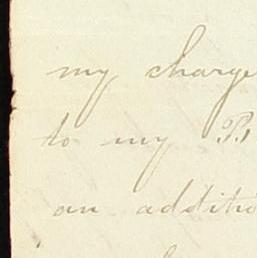 my charge
to my
an additio